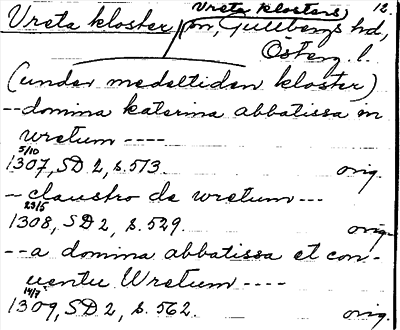 Vreta klosters 12.
Vreta kloster, sn, Gullbergs hd,
Österg. l.
(under medeltiden kloster)
--domina katerina abbatissa in
wretum ----
5/10
1307, SD 2, s. 513. orig.
-- claustro de wretum ---
23/5
1308, SD 2, s. 529. orig.
--a domina abbatissa et con-
uentu Wretum ----
14/7
1309, SD 2, s. 562. orig.